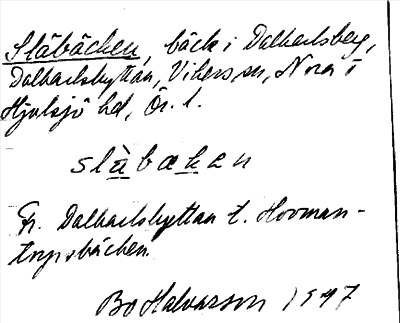 Slåbäcken, bäck i Dalkarlsberg,
Dalkarlshyttan, Vikers sn, Nora o
Hjulsjö hd, Ör. l.
slåbækən
Fr. Dalkarlshyttan t. Hovman-
torpsbäcken.
Bo Halvarson 1947